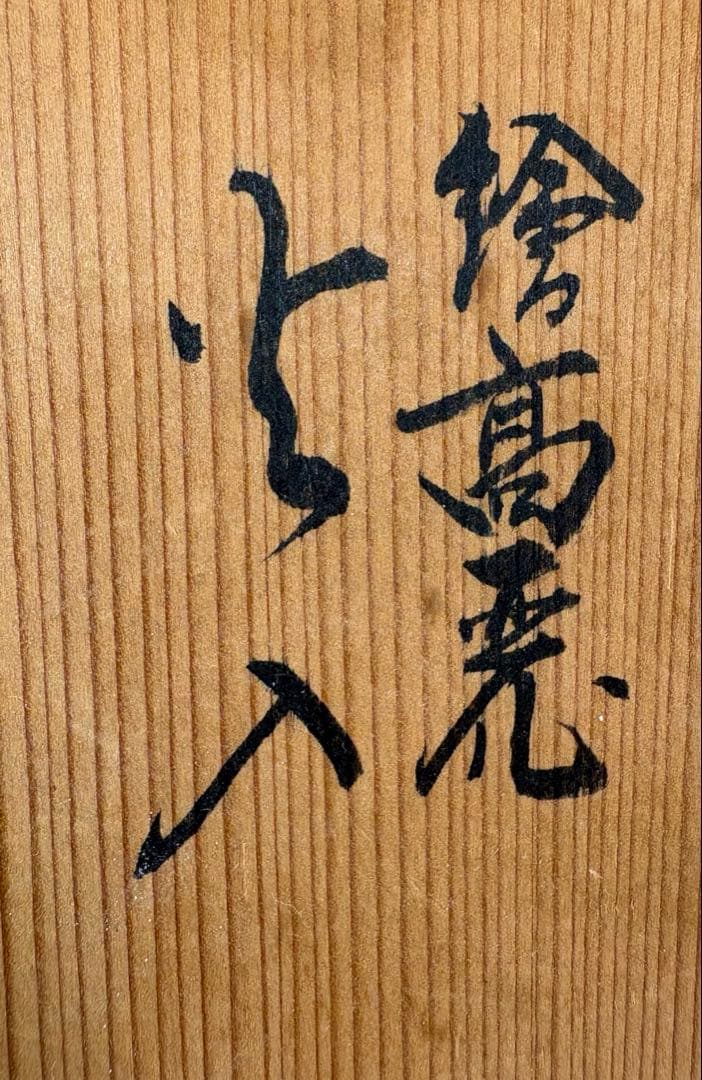 繪高麗
火入